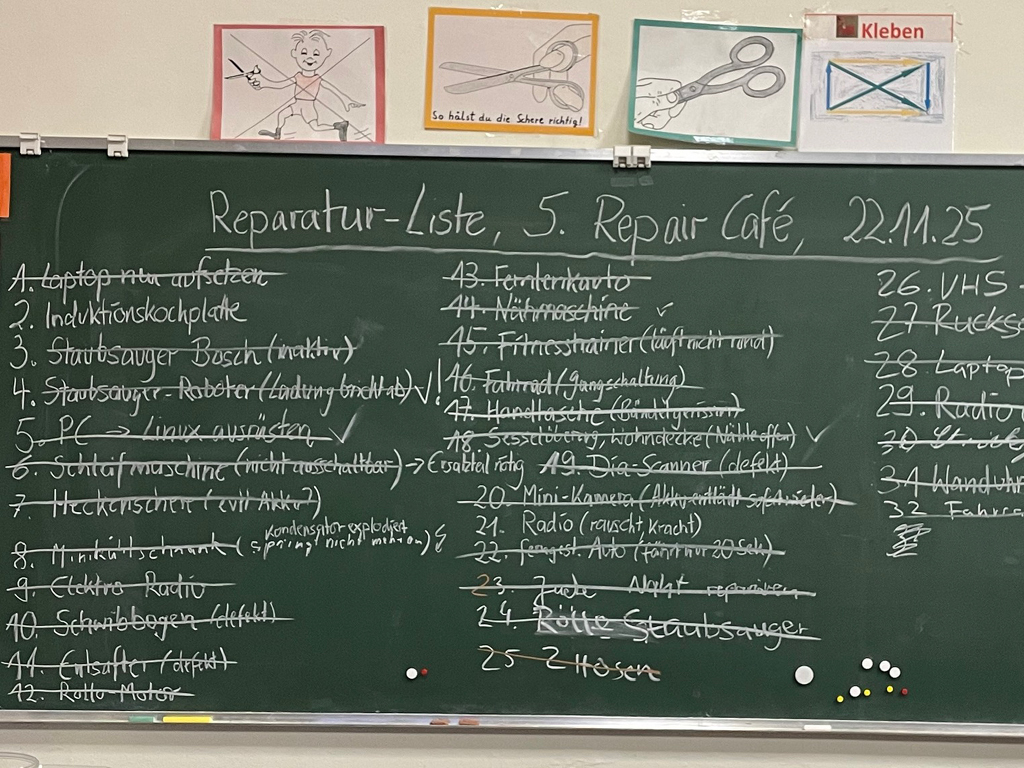 Kleben
So hälst du die Schere richtig!
Reparatur-Liste, 5. Repair Café, 22.11.25
1. Laptop neu aufsetzen
2. Induktionskochplatte
3. Staubsauger Bosch (inaktiv)
4. Staubsauger-Roboter (Ladung bricht ab) ✓!
5. PC → Linux ausrüsten ✓
6. Schleifmaschine (nicht ausschaltbar) → Ersatzteil nötig
7. Heckenschere (evtl Akku?)
Kondensator explodiert
8. Minikühlschrank (springt nicht mehr an)
9. Elektro Radio
10. Schwibbogen (defekt)
11. Entsafter (defekt)
12. Rollo-Motor
13. Fernlenkauto
14. Nähmaschine ✓
15. Fitnesstrainer (läuft nicht rund)
16. Fahrrad (Gangschaltung)
17. Handtasche (Bändelgerissen)
18. Sesselüberzug, Wohndecke (Nähte offen) ✓
19. Dia-Scanner (defekt)
20. Mini-Kamera (Akku entlädt sofort wieder)
21. Radio (rauscht, kracht)
22. ferngest. Auto (fährt nur 20 Sek)
23. Jacke Naht reparieren
24. Rölle Staubsauger
25 2 Hosen
26. VHS
27 Rucks
28. Laptop
29. Radio
30
31 Wanduhr
32 Fahrra